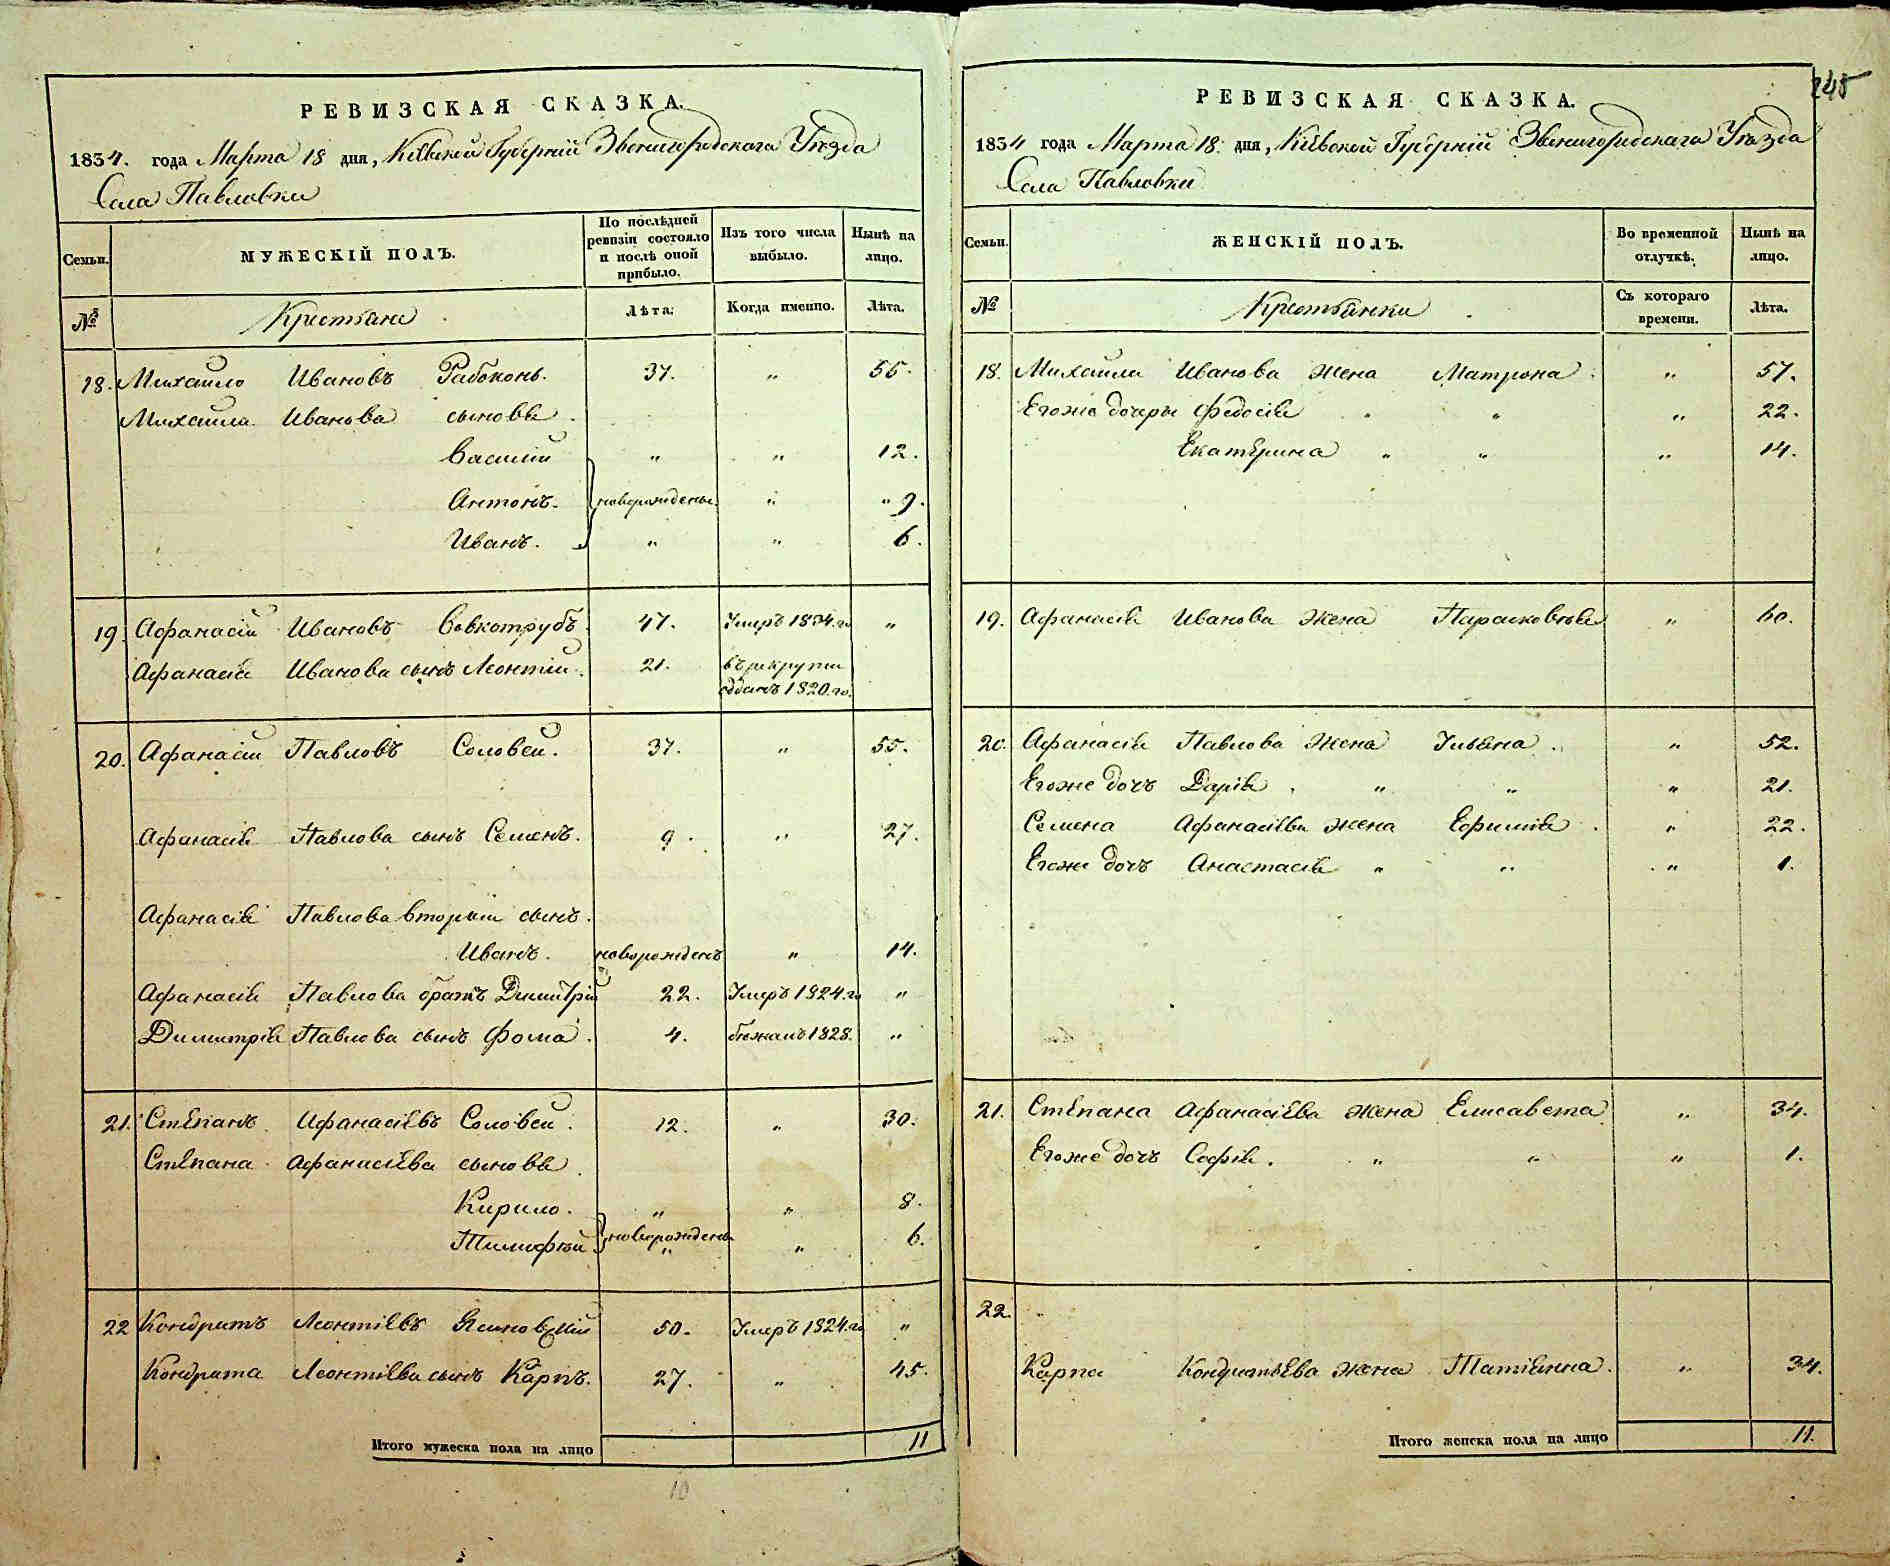 РЕВИЗСКАЯ СКАЗКА.
1834. года Марта 18 дня, Кіевской Губерніи Звенигородскаго Уѣзда
Села Павловки
Семьи.
МУЖЕСКІЙ ПОЛЪ.
По послѣдней ревизіи состояло и послѣ оной прибыло.
Изъ того числа выбыло.
Нынѣ на лицо.
№
Крестьяне
Лѣта.
Когда именно.
Лѣта.
18. Михайло Ивановъ Рабоконь. 37. " 55.
Михайла Иванова сыновья
Василій " " 12.
Антонъ. новорожденны " " 9.
Иванъ. " " 6.
19. Афанасій Ивановъ Вовкотрубъ. 47. Умеръ 1834.го "
Афанасія Иванова сынъ Леонтій. 21. въ рекруты
отданъ 1820.го.
20. Афанасій Павловъ Соловей. 37. " 55.
Афанасія Павлова сынъ Семенъ. 9. " 27.
Афанасія Павлова вторый сынъ.
Иванъ. новорожденъ " 14.
Афанасія Павлова братъ Димитрій 22. Умеръ 1824.го "
Димитрія Павлова сынъ Фома. 4. бѣжалъ 1828. "
21. Стѣпанъ Афанасіевъ Соловей. 12. " 30.
Стѣпана Афанасіева сыновья.
Кирило. " " 8.
Тимофѣй новорожденны " " 6.
22 Кондратъ Леонтіевъ Ясиновскій 50. Умеръ 1824.го "
Кондрата Леонтіева сынъ Карпъ. 27. " 45.
Итого мужеска пола на лицо 11
10
245
РЕВИЗСКАЯ СКАЗКА.
1834 года Марта 18. дня, Кіевской Губерніи Звенигородскаго Уѣзда
Села Павловки
Семьи.
ЖЕНСКІЙ ПОЛЪ.
Во временной отлучкѣ.
Нынѣ на лицо.
№
Крестьянки
Съ котораго времени.
Лѣта.
18. Михайла Иванова жена Матрона. " 57.
Егоже дочери Федосія " " 22.
Екатерина " " " 14.
19. Афанасія Иванова жена Парасковѣя " 60.
20. Афанасія Павлова жена Ульяна. " 52.
Егоже дочъ Дарія. " " " 21.
Семена Афанасіева жена Ефимія. " 22.
Егоже дочъ Анастасія " " " 1.
21. Стѣпана Афанасіева жена Елисавета " 34.
Егоже дочъ Софія. " " " 1.
22. "
Карпа Кондратьева жена Татіянна. " 34.
Итого женска пола на лицо 11.